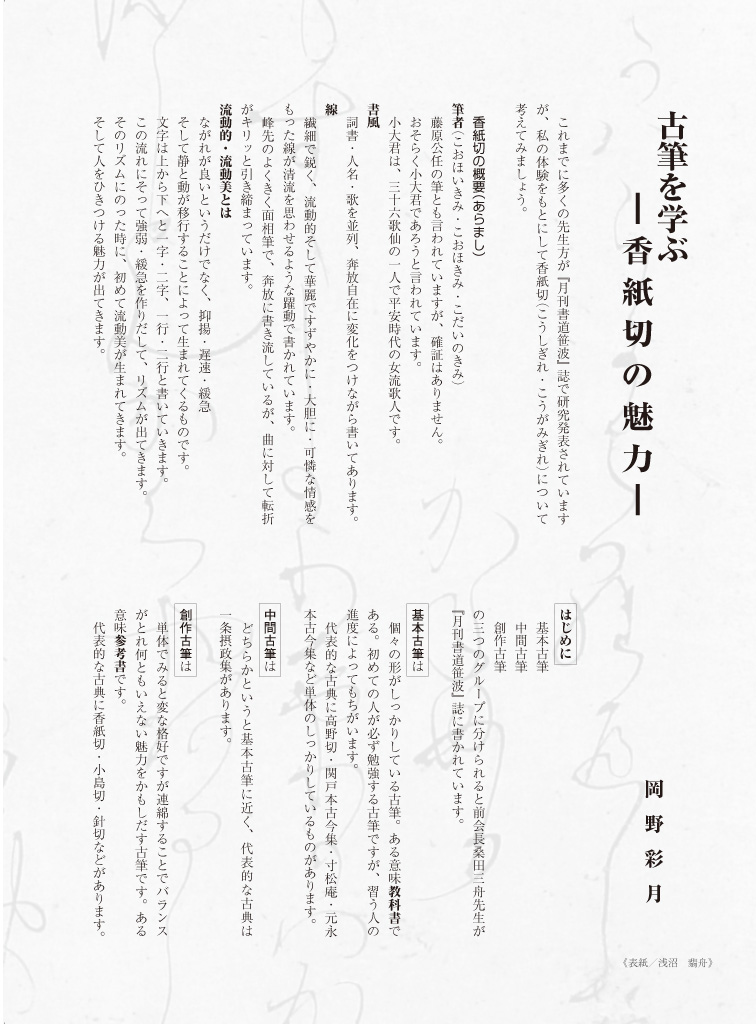 古筆を学ぶ
―香紙切の魅力―
岡野彩月
これまでに多くの先生方が『月刊書道笹波』誌で研究発表されています
が、私の体験をもとにして香紙切(こうしぎれ・こうがみぎれ)について
考えてみましょう。
香紙切の概要(あらまし)
筆者(こおほいきみ・こおほきみ・こだいのきみ)
藤原公任の筆とも言われていますが、確証はありません。
おそらく小大君であろうと言われています。
小大君は、三十六歌仙の一人で平安時代の女流歌人です。
書風
詞書・人名・歌を並列、奔放自在に変化をつけながら書いてあります。
線
繊細で鋭く、流動的そして華麗ですずやかに・大胆に・可憐な情感を
もった線が清流を思わせるような躍動で書かれています。
峰先のよくきく面相筆で、奔放に書き流しているが、曲に対して転折
がキリッと引き締まっています。
流動的・流動美とは
ながれが良いというだけでなく、抑揚・遅速・緩急
そして静と動が移行することによって生まれてくるものです。
文字は上から下へと一字・二字、一行・二行と書いていきます。
この流れにそって強弱・緩急を作りだして、リズムが出てきます。
そのリズムにのった時に、初めて流動美が生まれてきます。
そして人をひきつける魅力が出てきます。
はじめに
基本古筆
中間古筆
創作古筆
の三つのグループに分けられると前会長桑田三舟先生が
『月刊書道笹波』誌に書かれています。
基本古筆は
個々の形がしっかりしている古筆。ある意味教科書で
ある。初めての人が必ず勉強する古筆ですが、習う人の
進度によってもちがいます。
代表的な古典に高野切・関戸本古今集・寸松庵・元永
本古今集など単体のしっかりしているものがあります。
中間古筆は
どちらかというと基本古筆に近く、代表的な古典は
一条摂政集があります。
創作古筆は
単体でみると変な格好ですが連綿することでバランス
がとれ何ともいえない魅力をかもしだす古筆です。ある
意味参考書です。
代表的な古典に香紙切・小島切・針切などがあります。
《表紙／浅沼　翡舟》